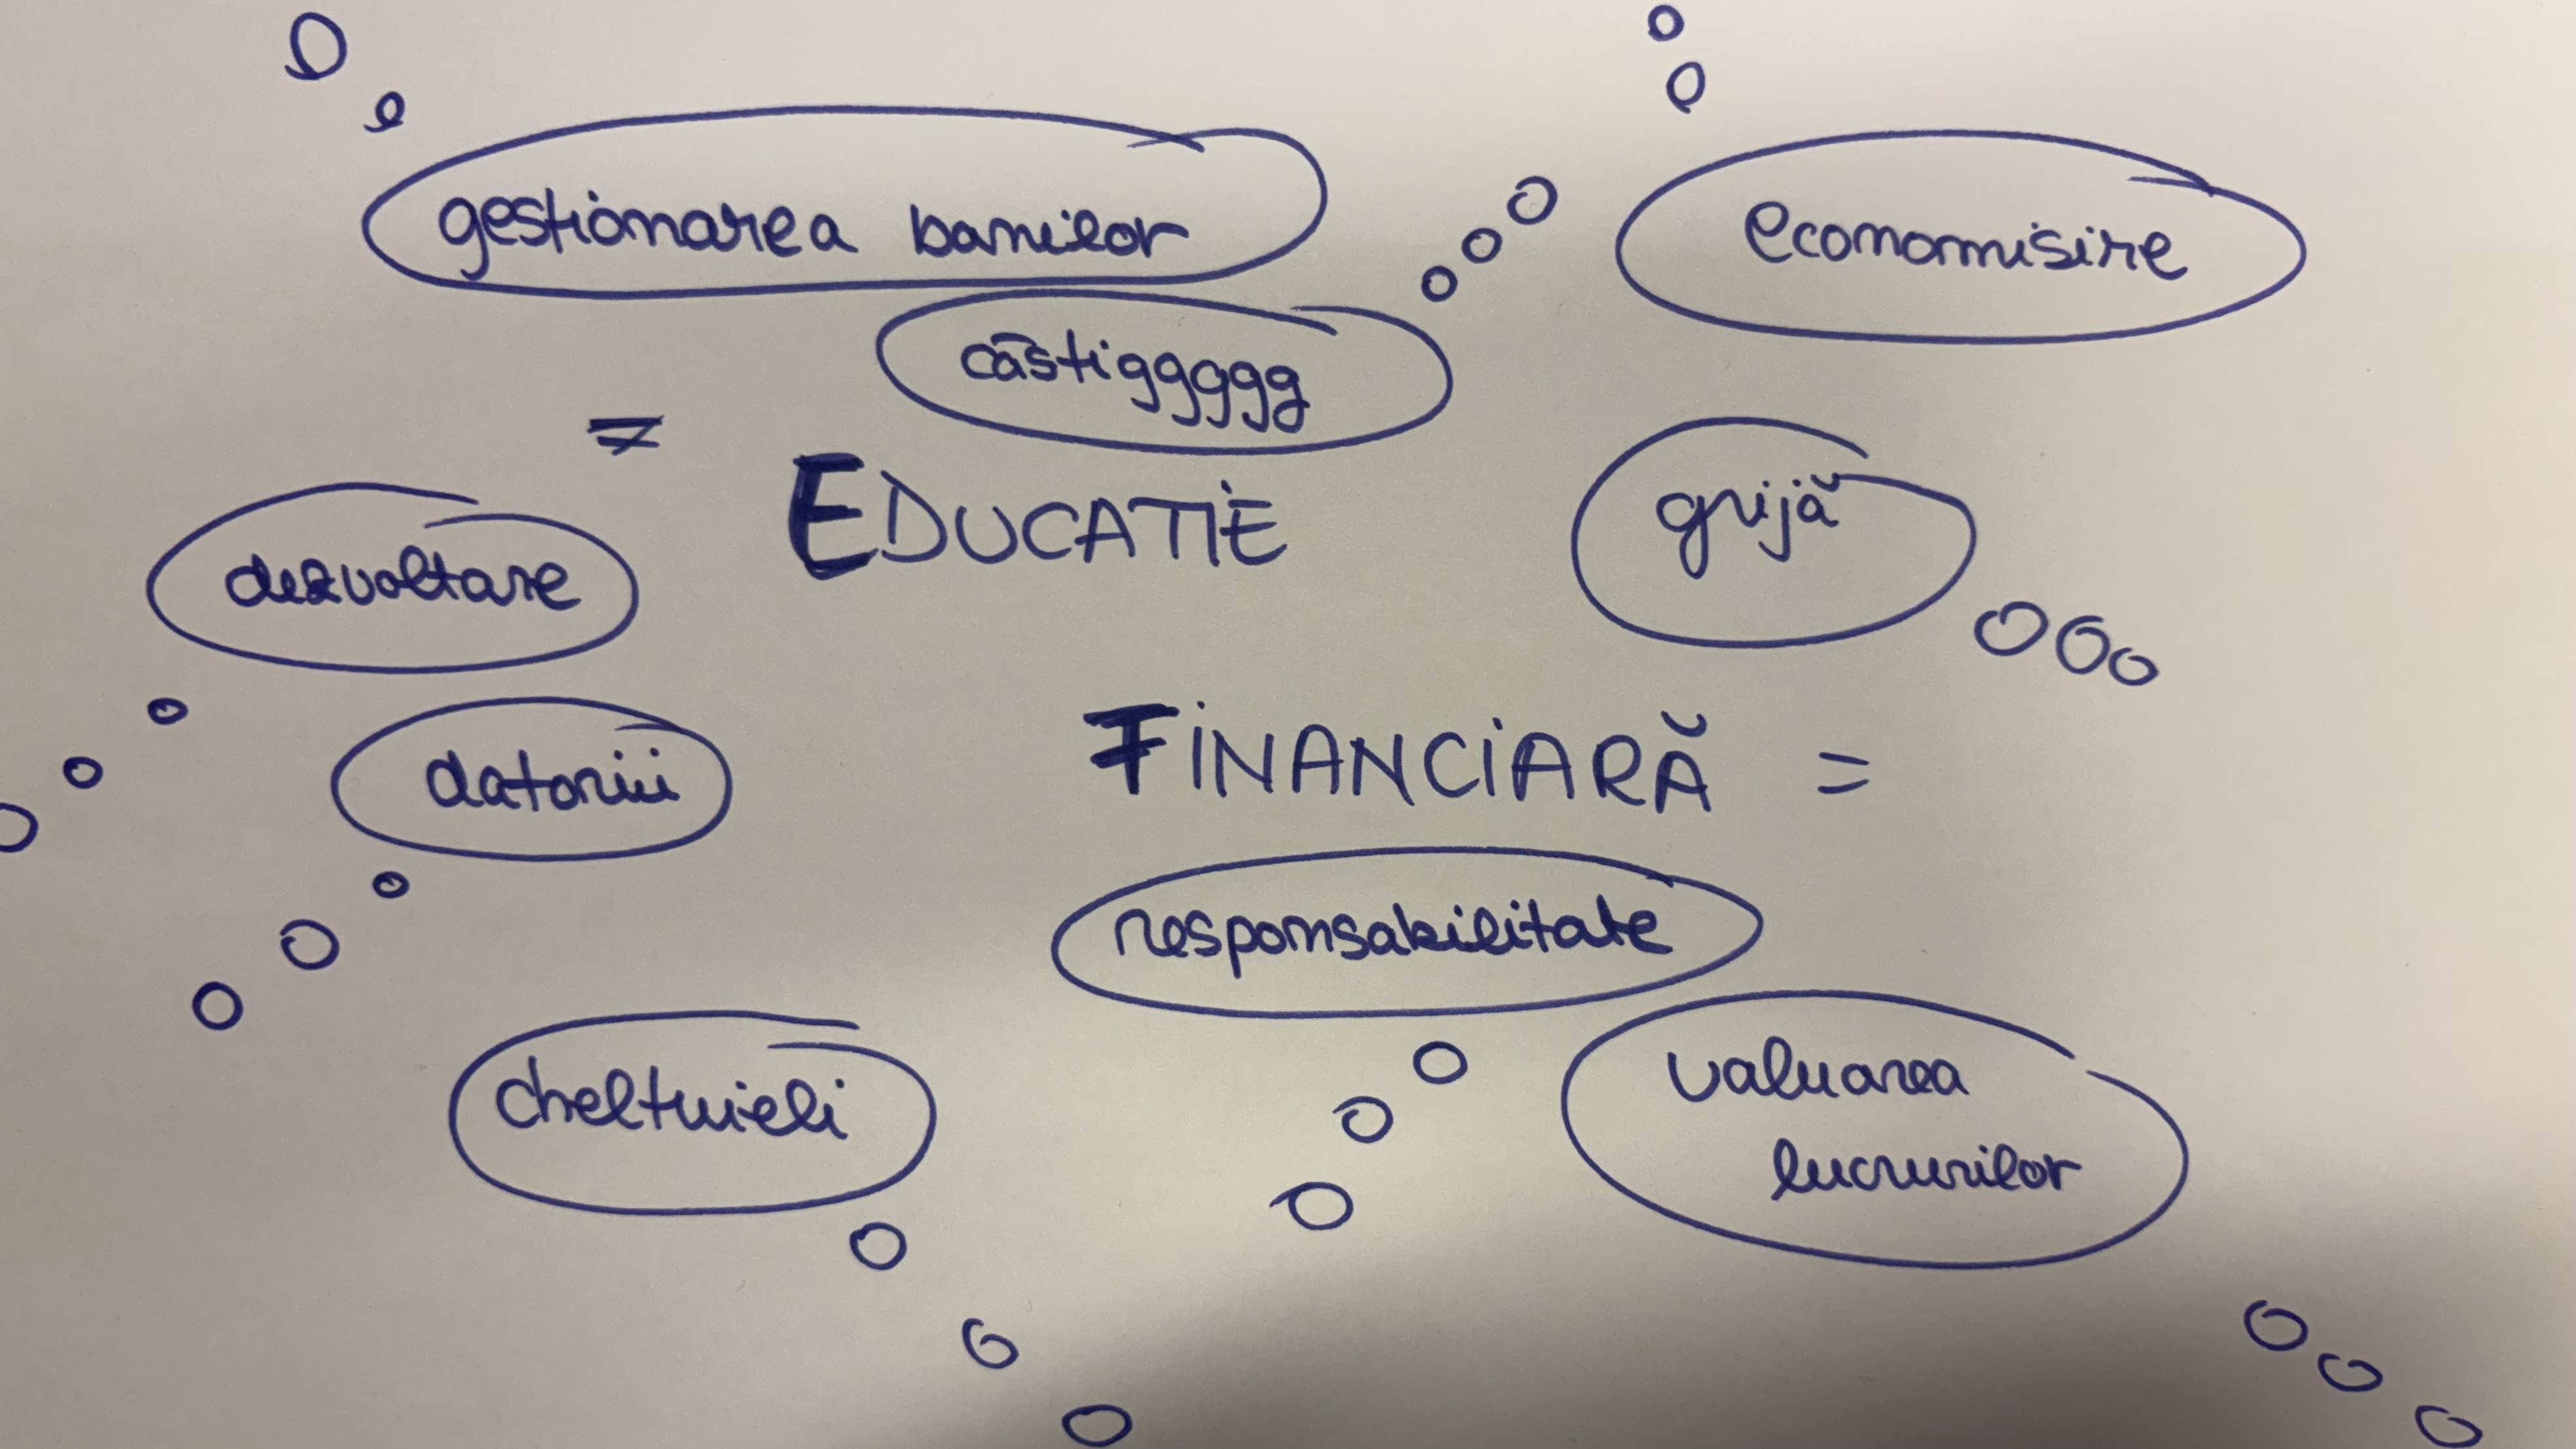 gestionarea banilor
economisire
câstiggggg
=
EDUCATIE
grijă
dezvoltare
datorii
FINANCIARĂ =
responsabilitate
cheltuieli
valuarea
lucrurilor